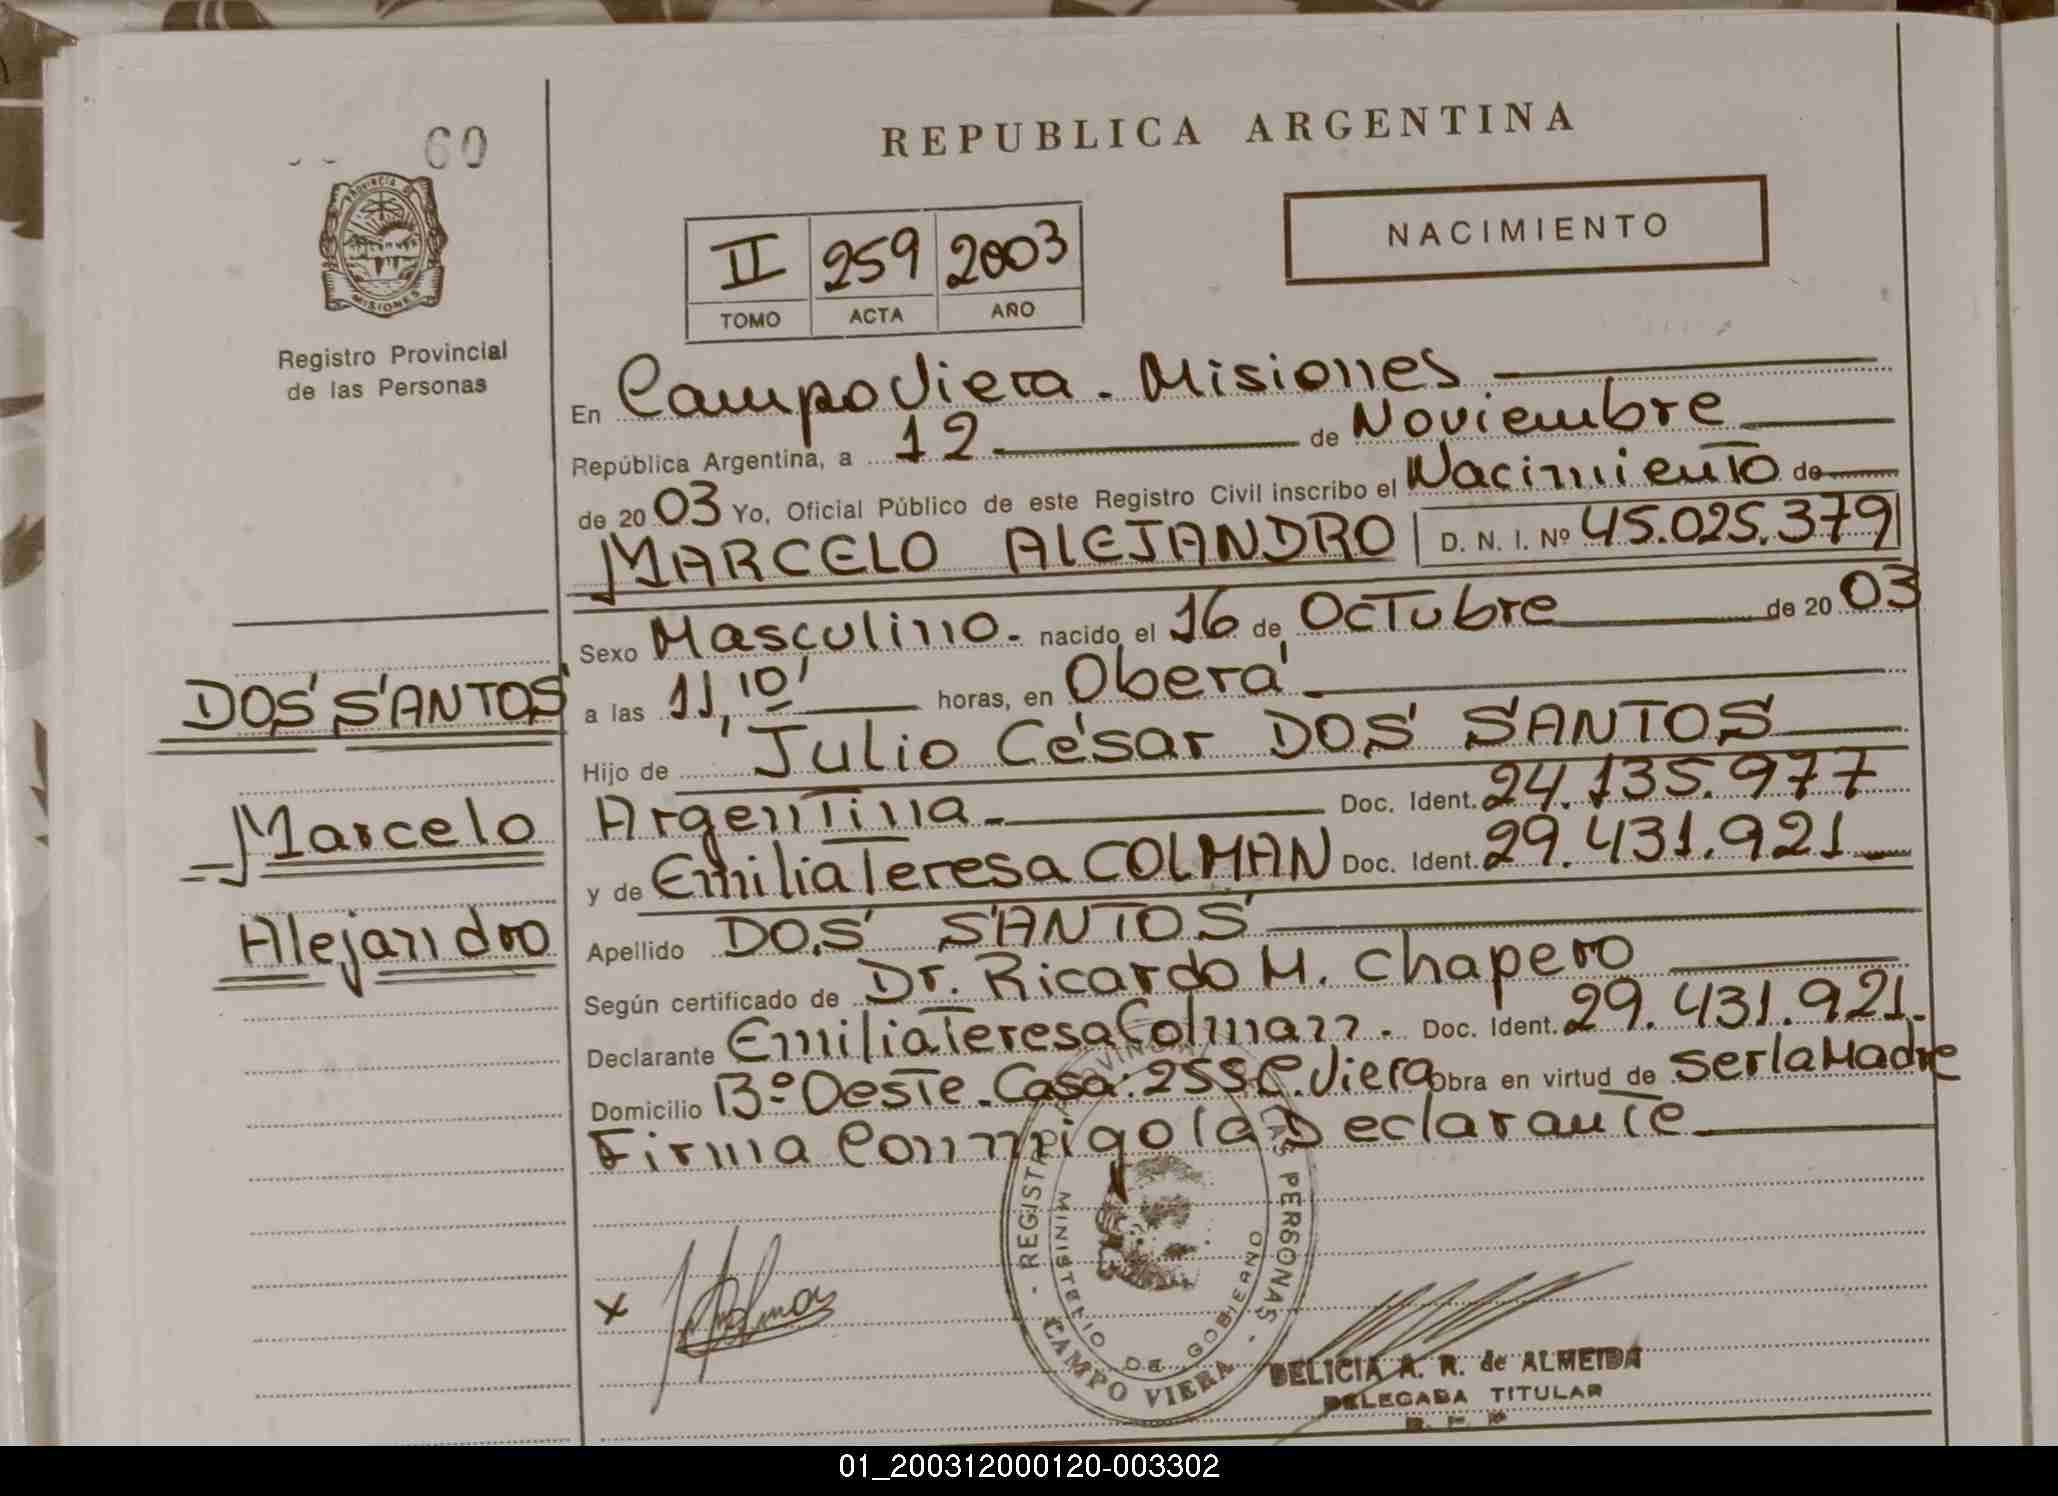 60
REPUBLICA ARGENTINA
PROVINCIA DE
MISIONES
Registro Provincial
de las Personas
II 259 2003
TOMO ACTA AÑO
NACIMIENTO
En Campo Viera - Misiones
República Argentina, a 12 de Noviembre
de 2003 Yo, Oficial Público de este Registro Civil inscribo el Nacimiento de
MARCELO ALEJANDRO D. N. I. Nº 45.025.379
Sexo Masculino. nacido el 16 de Octubre de 2003
DOS SANTOS
Marcelo
Alejandro
a las 11,10' horas, en Oberá
Hijo de Julio César DOS SANTOS
Argentina Doc. Ident. 24.135.977
y de Emilia Teresa COLMAN Doc. Ident. 29.431.921
Apellido DOS SANTOS
Según certificado de Dr. Ricardo M. Chapero
Declarante Emilia Teresa Colman. Doc. Ident. 29.431.921.
Domicilio Bº Oeste. Casa: 255 C. Viera obra en virtud de ser la Madre
Firma Conmigo la Declarante
x
CAMPO VIERA
MINISTERIO DE GOBIERNO
PERSONAS
DELICIA A. R. de ALMEIDA
DELEGADA TITULAR
01_200312000120-003302